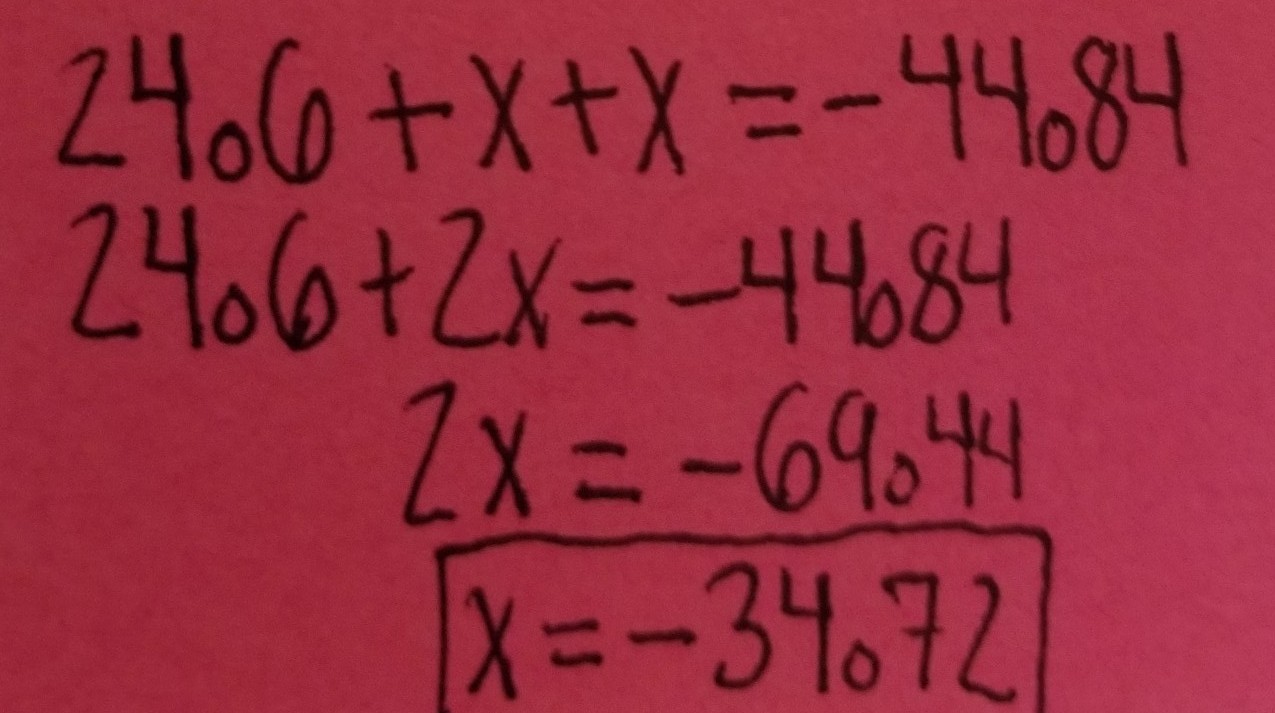 24.6 + x + x = -44.84
24.6 + 2x = -44.84
2x = -69.44
x = -34.72